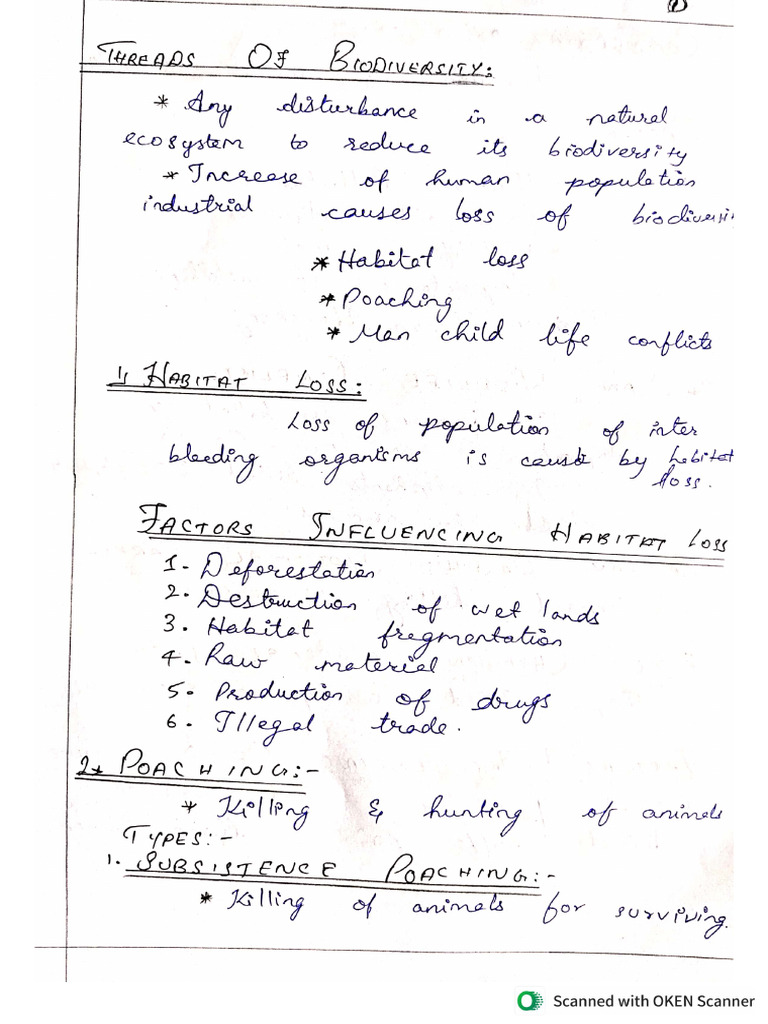 ①
THREADS OF BIODIVERSITY:
* Any disturbance in a natural
ecosystem to reduce its biodiversity
* Increase of human population
industrial causes loss of biodiversi
* Habitat loss
* Poaching
* Man child life conflicts
1, HABITAT LOSS:
Loss of population of inter
bleeding organisms is caused by habitat
loss.
FACTORS INFLUENCING HABITAT LOSS
1. Deforestation
2. Destruction of wet lands
3. Habitat fregmentation
4. Raw material
5. Production of drugs
6. Illegal trade.
2* POACHING:-
* Killing & hunting of animals
TYPES:-
1. SUBSISTENCE POACHING:-
* Killing of animals for surviving.
Scanned with OKEN Scanner